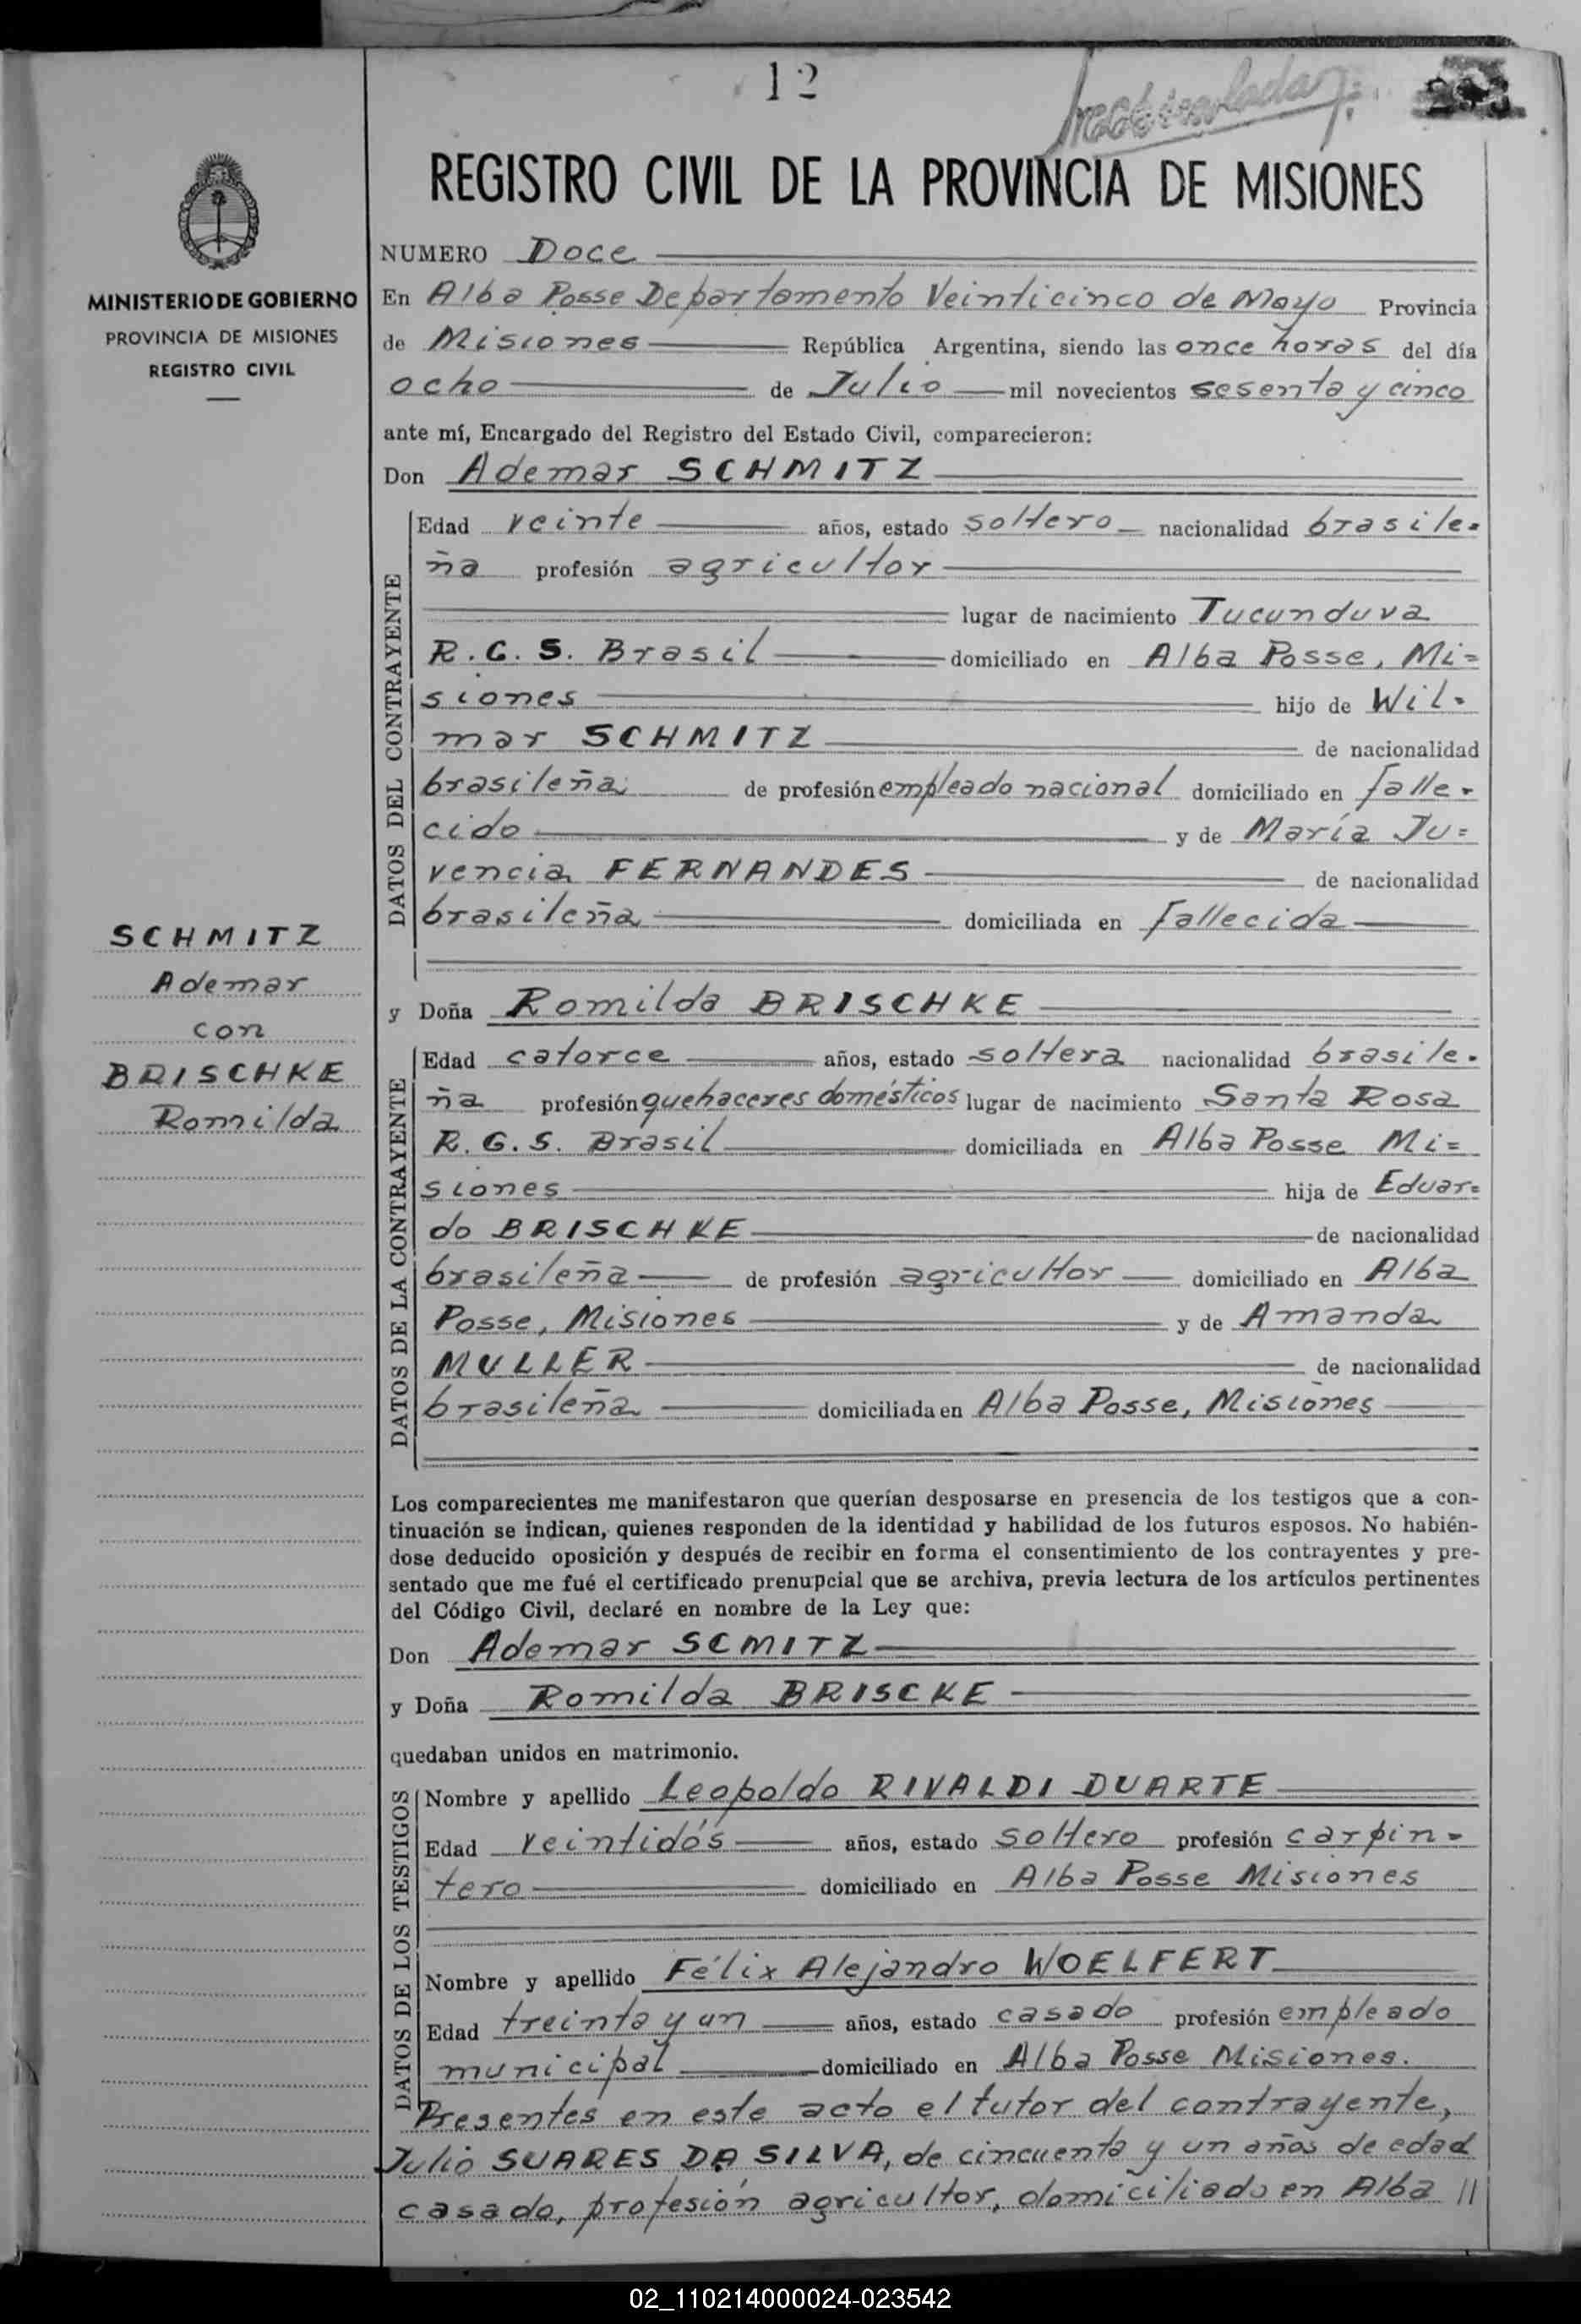 12
REGISTRO CIVIL DE LA PROVINCIA DE MISIONES
MINISTERIO DE GOBIERNO
PROVINCIA DE MISIONES
REGISTRO CIVIL
NUMERO Doce
En Alba Posse Departamento Veinticinco de Mayo Provincia
de Misiones República Argentina, siendo las once horas del día
ocho de Julio mil novecientos sesenta y cinco
ante mí, Encargado del Registro del Estado Civil, comparecieron:
Don Ademar SCHMITZ
DATOS DEL CONTRAYENTE
Edad veinte años, estado soltero nacionalidad brasile-
ña profesión agricultor
lugar de nacimiento Tucunduva
R.G.S. Brasil domiciliado en Alba Posse, Mi=
siones hijo de Wil-
mar SCHMITZ de nacionalidad
brasileña de profesión empleado nacional domiciliado en falle-
cido y de María Ju=
vencia FERNANDES de nacionalidad
brasileña domiciliada en fallecida
SCHMITZ
Ademar
con
BRISCHKE
Romilda
y Doña Romilda BRISCHKE
DATOS DE LA CONTRAYENTE
Edad catorce años, estado soltera nacionalidad brasile-
ña profesión quehaceres domésticos lugar de nacimiento Santa Rosa
R.G.S. Brasil domiciliada en Alba Posse Mi=
siones hija de Eduar=
do BRISCHKE de nacionalidad
brasileña de profesión agricultor domiciliado en Alba
Posse, Misiones y de Amanda
MULLER de nacionalidad
brasileña domiciliada en Alba Posse, Misiones
Los comparecientes me manifestaron que querían desposarse en presencia de los testigos que a con-
tinuación se indican, quienes responden de la identidad y habilidad de los futuros esposos. No habién-
dose deducido oposición y después de recibir en forma el consentimiento de los contrayentes y pre-
sentado que me fué el certificado prenupcial que se archiva, previa lectura de los artículos pertinentes
del Código Civil, declaré en nombre de la Ley que:
Don Ademar SCMITZ
y Doña Romilda BRISCKE
quedaban unidos en matrimonio.
DATOS DE LOS TESTIGOS
Nombre y apellido Leopoldo RIVALDI DUARTE
Edad veintidós años, estado soltero profesión carpin-
tero domiciliado en Alba Posse Misiones
Nombre y apellido Félix Alejandro WOELFERT
Edad treinta y un años, estado casado profesión empleado
municipal domiciliado en Alba Posse Misiones.
Presentes en este acto el tutor del contrayente,
Julio SUARES DA SILVA, de cincuenta y un años de edad
casado, profesión agricultor, domiciliado en Alba //
02_110214000024-023542